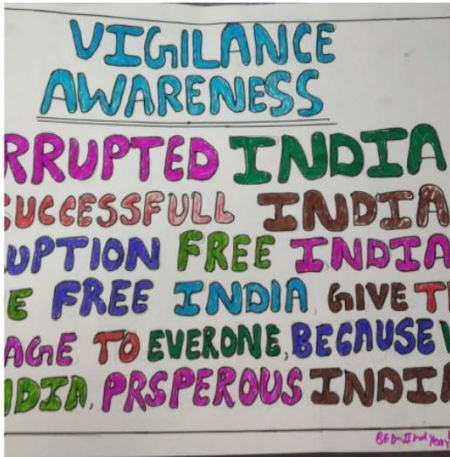 VIGILANCE
AWARENESS
RRUPTED INDIA
SUCCESSFULL INDIA
UPTION FREE INDIA
E FREE INDIA GIVE
AGE TO EVERONE, BECAUSE
NDIA, PRSPEROUS INDIA
BED-IInd Year